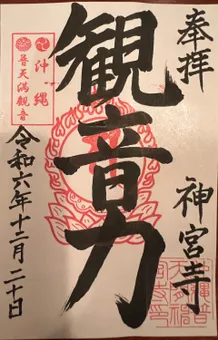 奉拝
沖縄
普天満観音
観音力
神宮寺
令和六年十二月二十日